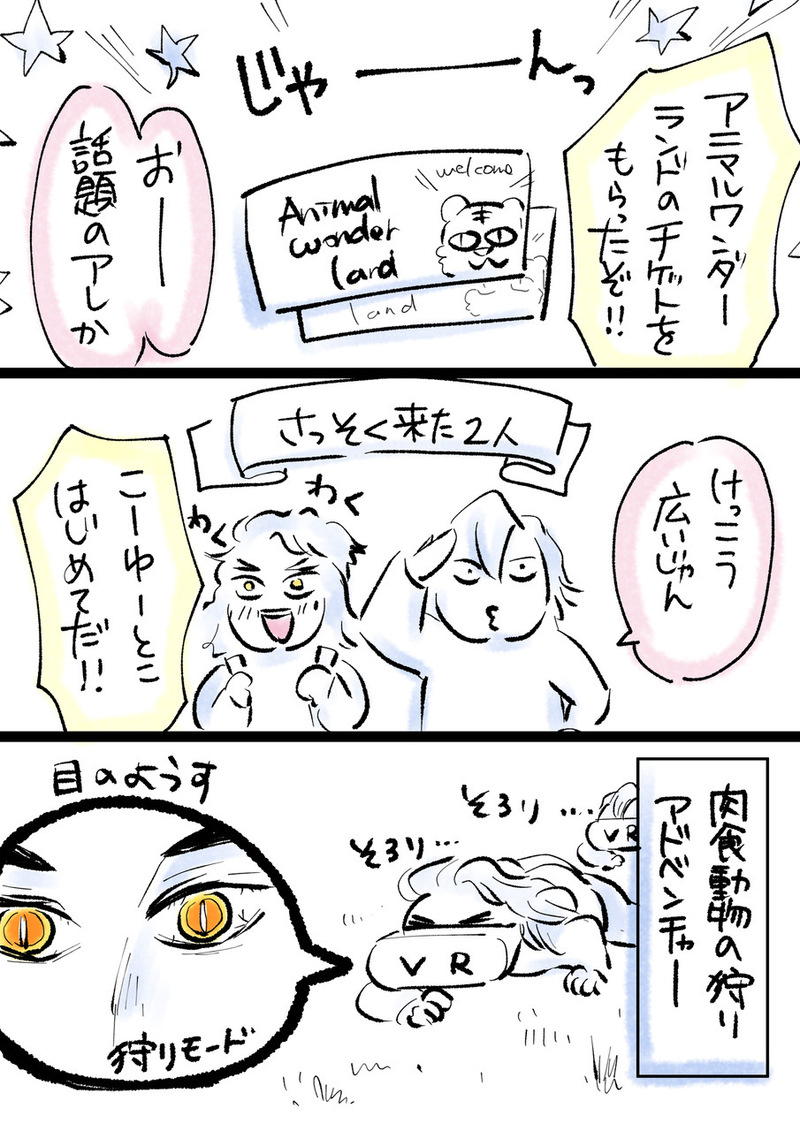 じゃーんっ
アニマルワンダー
ランドのチケットを
もらったぞ!!
welcome
Animal
wonder
land
land
おー
話題のアレか
さっそく来た2人
けっこう
広いじゃん
わく
わく
こーゆーとこ
はじめてだ!!
肉食動物の狩り
アドベンチャー
そろり…
VR
そろり…
VR
目のようす
狩りモード